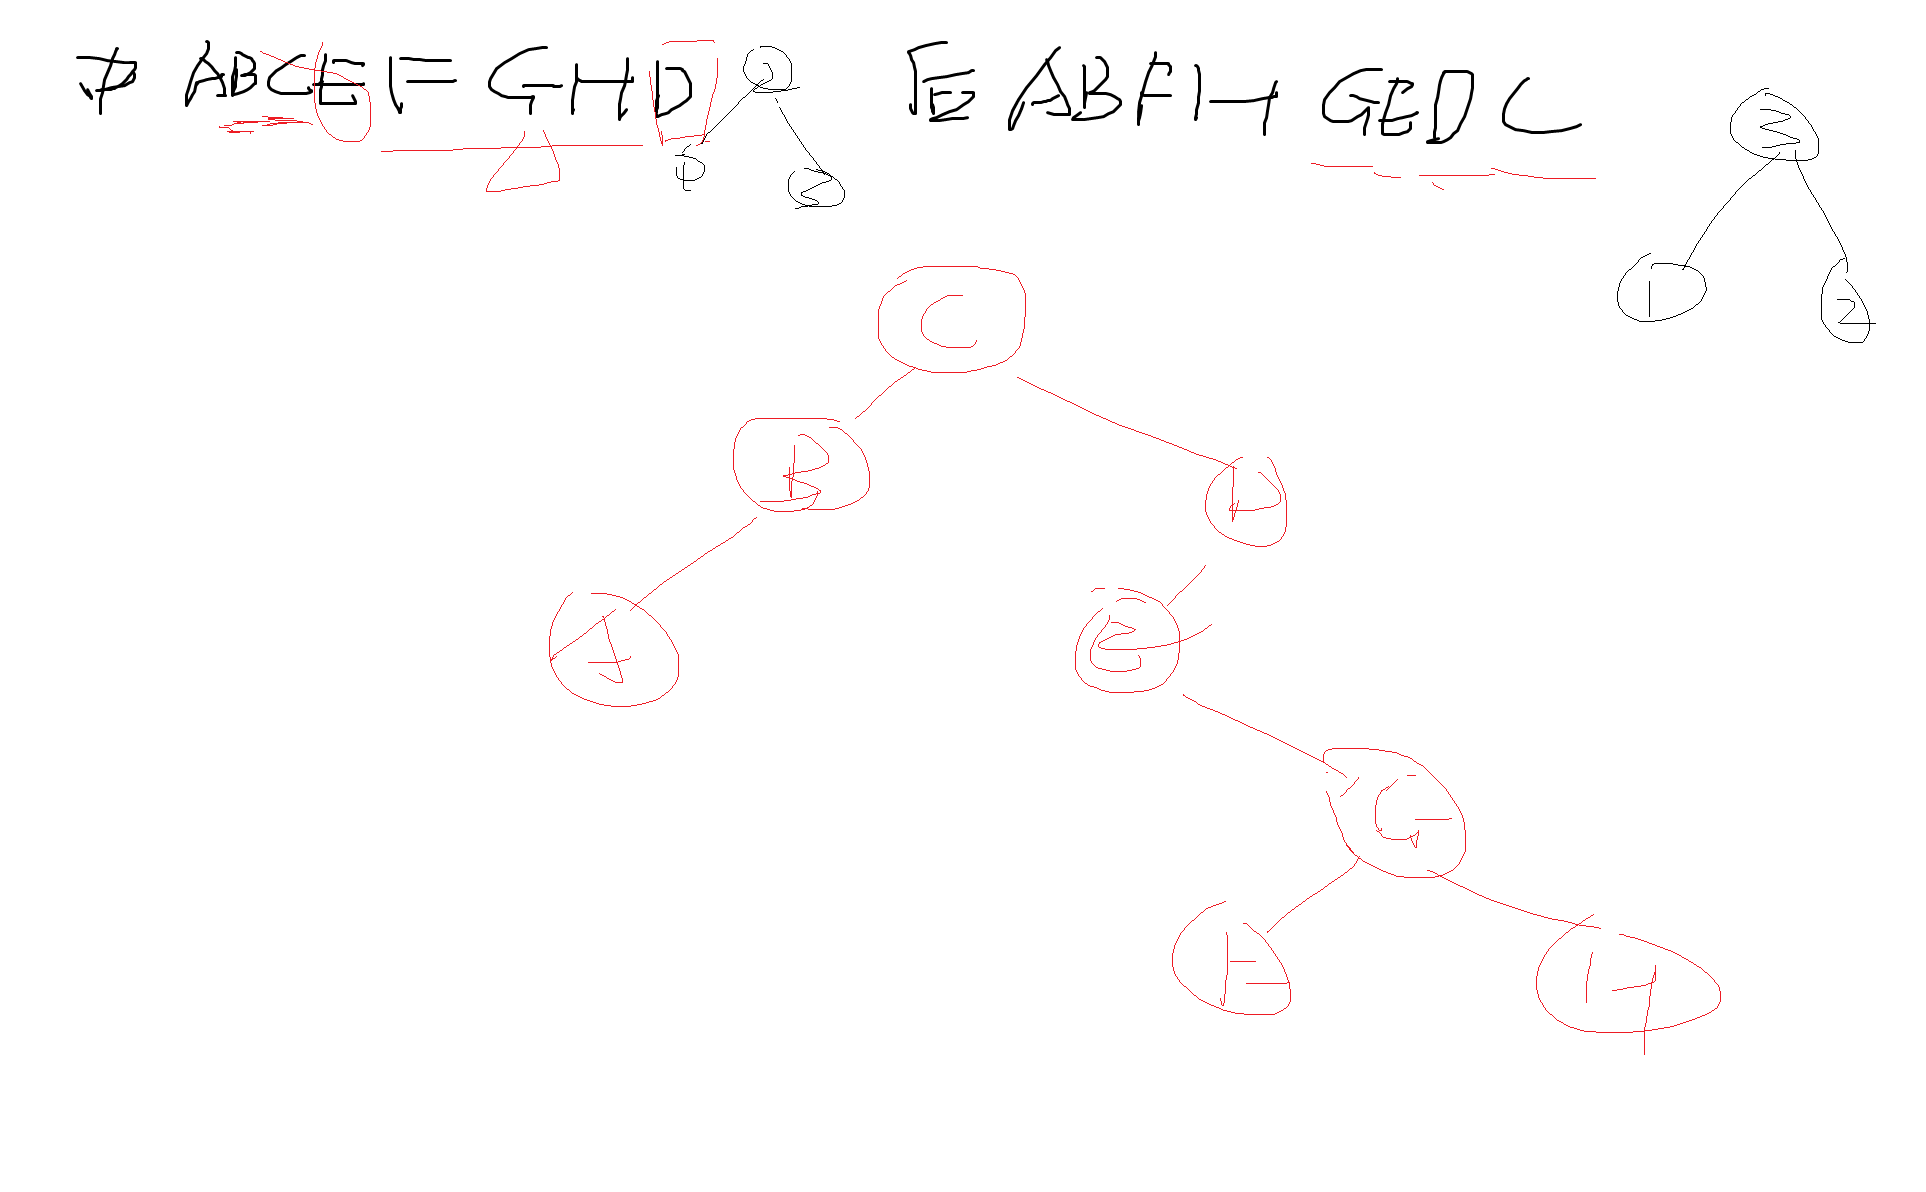 中 ABCEFGHD 后 ABFHGEDC
2
1
3
3
1
2
C
B
D
A
E
G
F
H